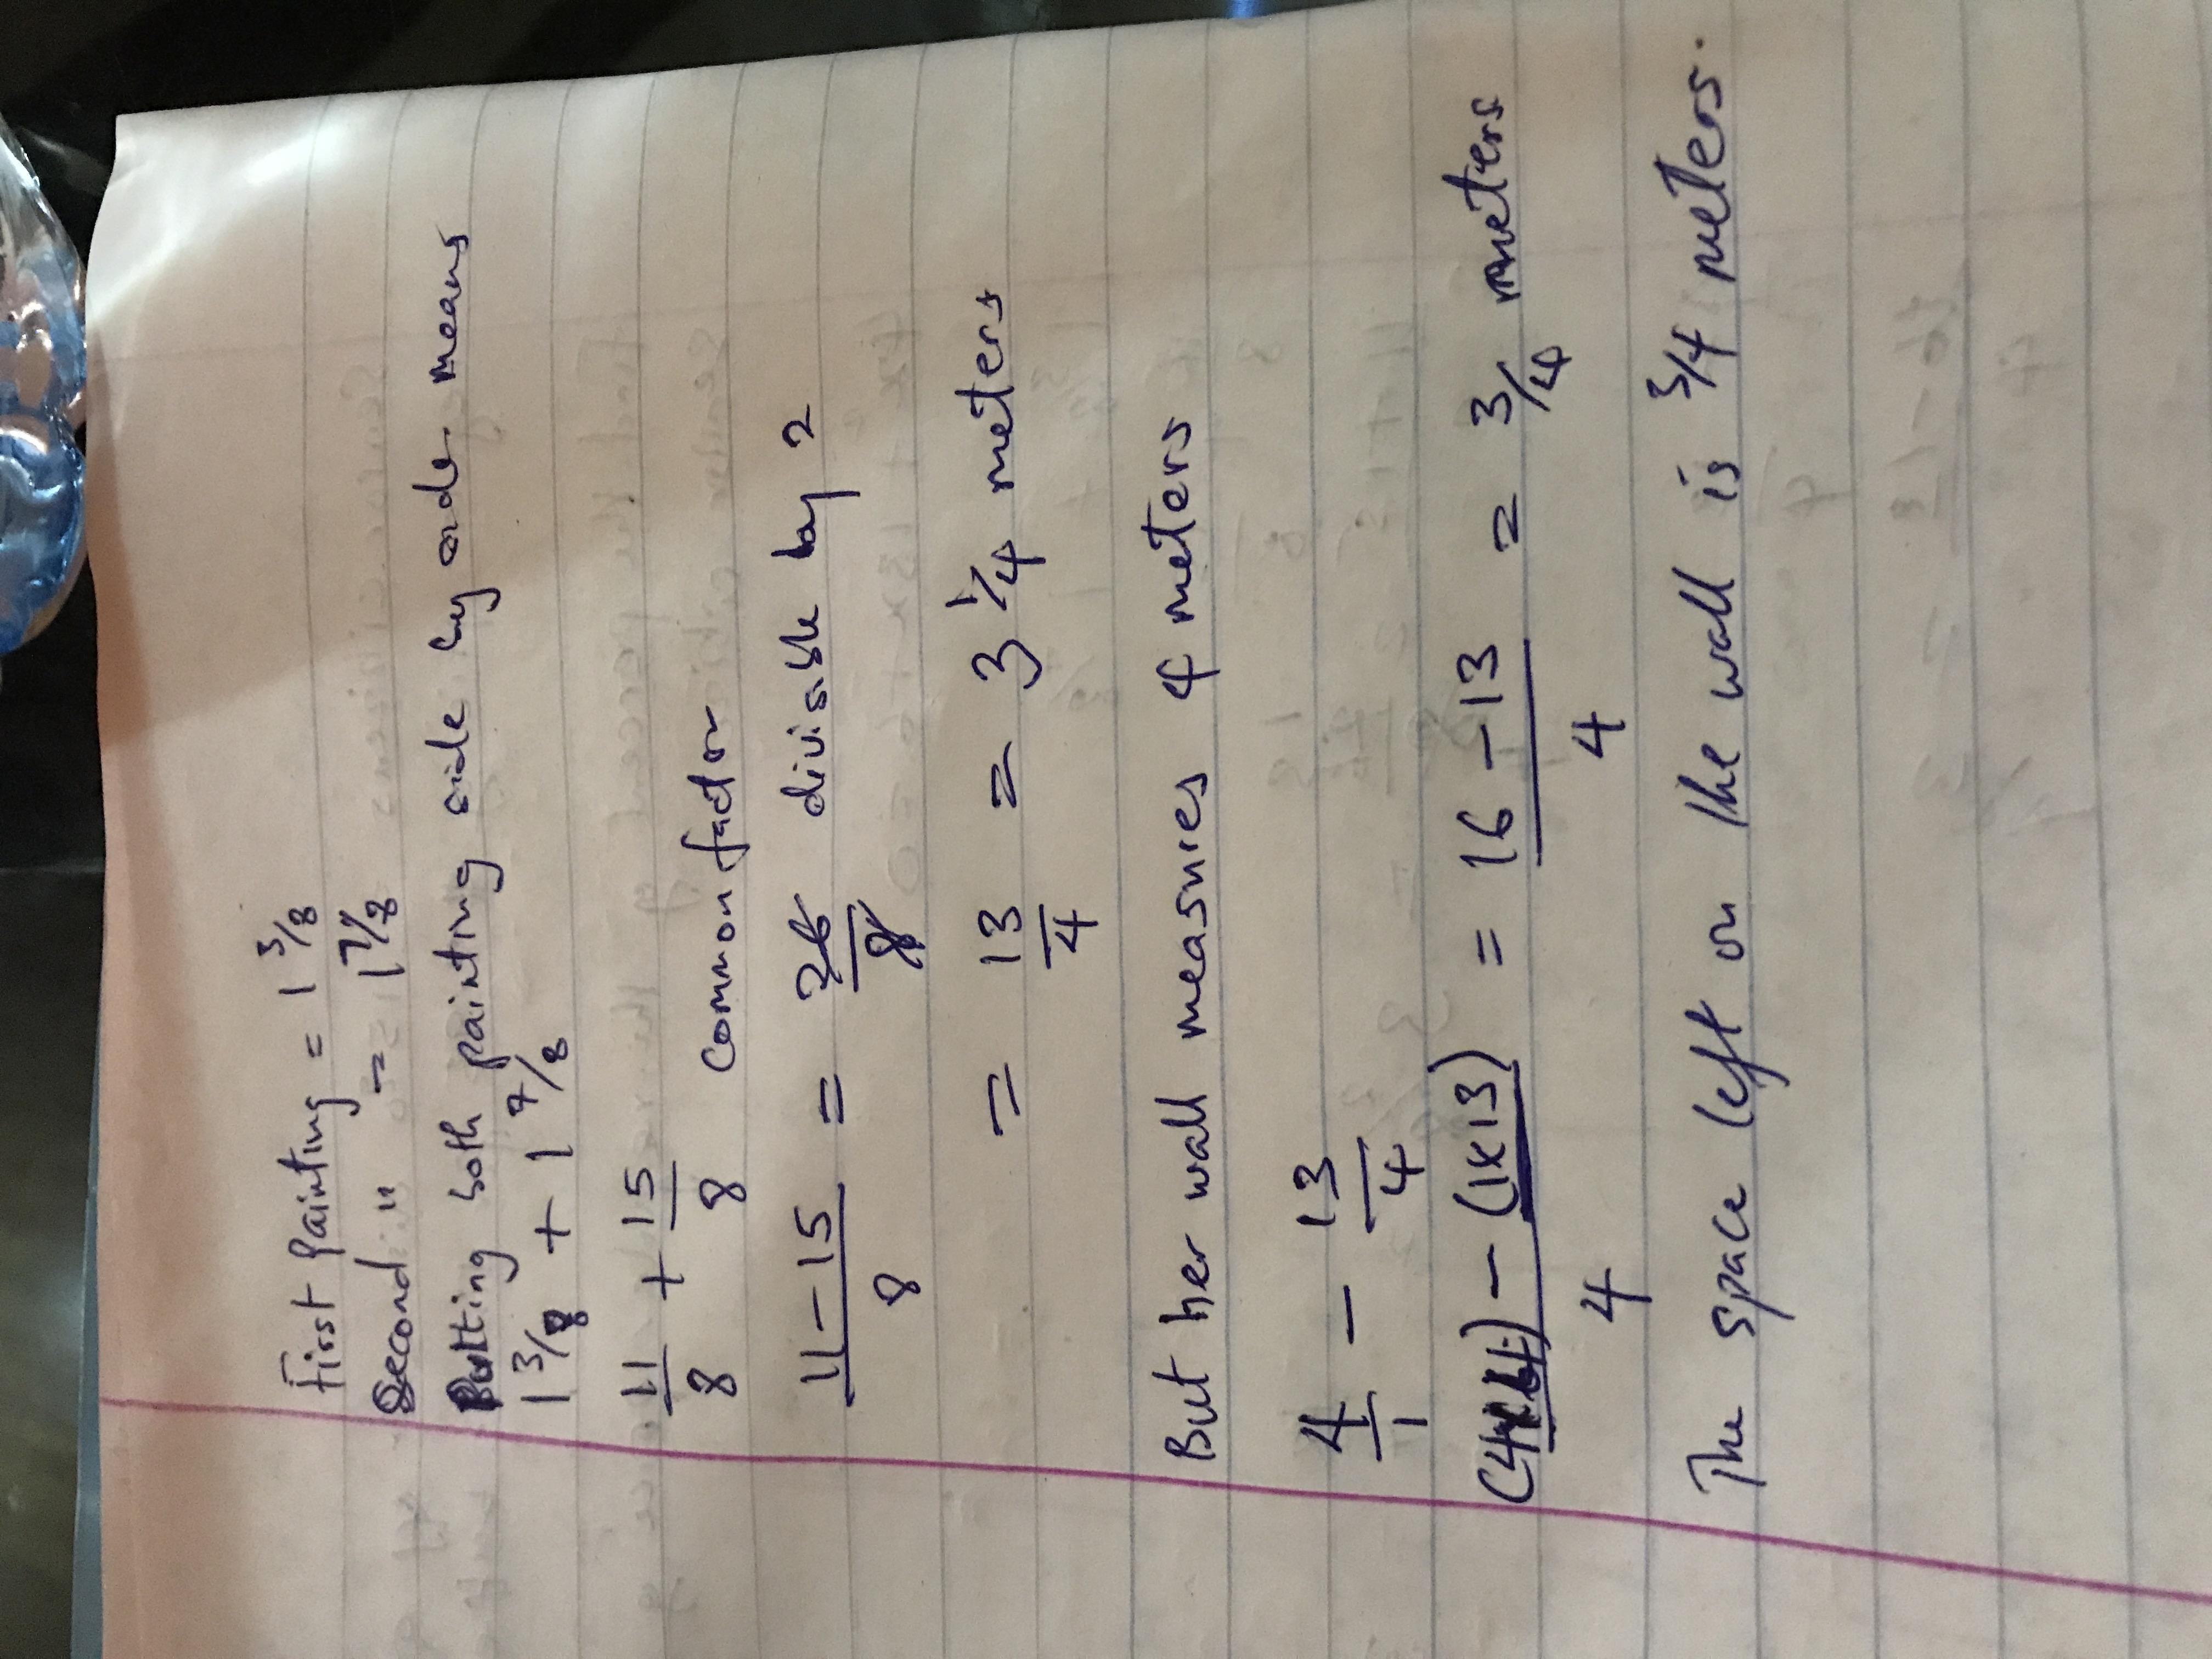 First Painting = 1 3/8
Second " = 1 7/8
Putting both painting side by side means
1 3/8 + 1 7/8
11/8 + 15/8 common factor
11 - 15 / 8 = 26/8 divisible by 2
= 13/4 = 3 1/4 meters
But her wall measures 4 meters
4/1 - 13/4
- (1x13) / 4 = 16 - 13 / 4 = 3/4 meters
The space left on the wall is 3/4 meters.